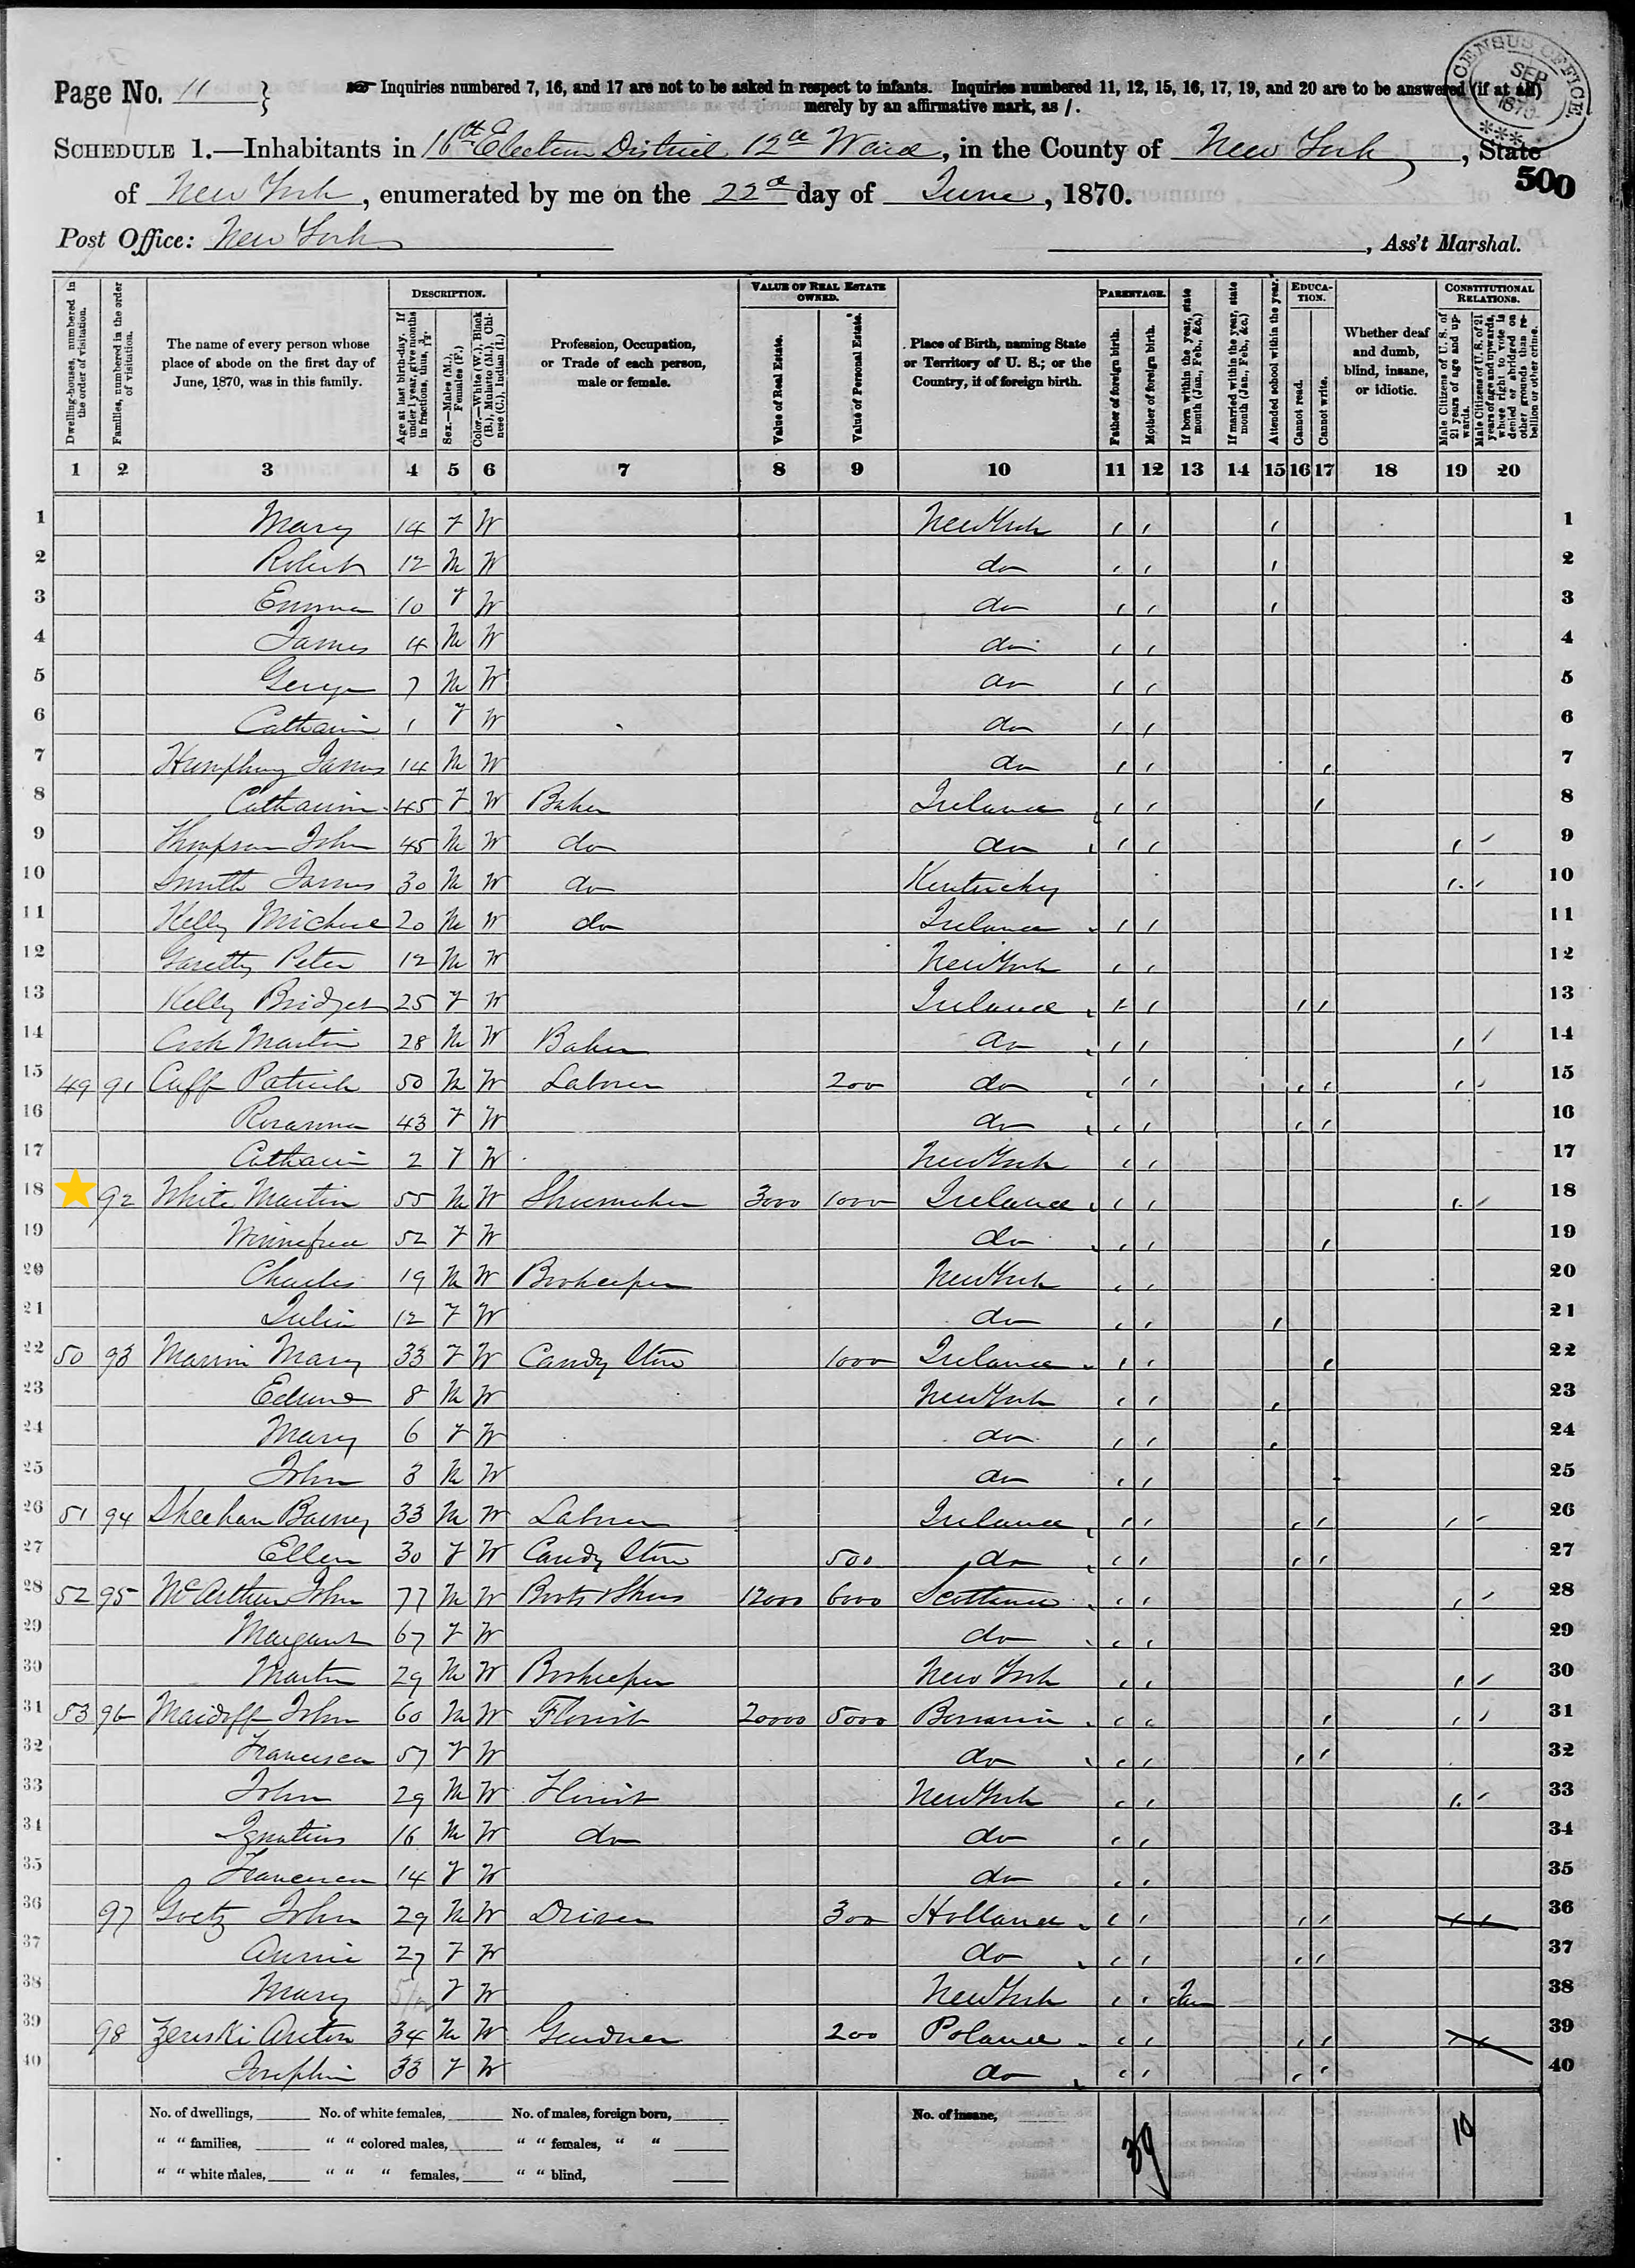 Page No. 11 } Inquiries numbered 7, 16, and 17 are not to be asked in respect to infants. Inquiries numbered 11, 12, 15, 16, 17, 19, and 20 are to be answered (if at all)
merely by an affirmative mark, as /.
CENSUS OFFICE SEP 1870
SCHEDULE 1.—Inhabitants in 16th Election District 12th Ward, in the County of New York, State
500
of New York, enumerated by me on the 22d day of June, 1870.
Post Office: New York , Ass't Marshal.
Dwelling-houses, numbered in the order of visitation.
Families, numbered in the order of visitation.
The name of every person whose place of abode on the first day of June, 1870, was in this family.
DESCRIPTION.
Age at last birth-day. If under 1 year, give months in fractions, thus, 3/12.
Sex.—Males (M.), Females (F.)
Color.—White (W.), Black (B.), Mulatto (M.), Chinese (C.), Indian (I.)
Profession, Occupation, or Trade of each person, male or female.
VALUE OF REAL ESTATE OWNED.
Value of Real Estate.
Value of Personal Estate.
Place of Birth, naming State or Territory of U. S.; or the Country, if of foreign birth.
PARENTAGE.
Father of foreign birth.
Mother of foreign birth.
If born within the year, state month (Jan., Feb., &c.)
If married within the year, state month (Jan., Feb., &c.)
Attended school within the year.
EDUCATION.
Cannot read.
Cannot write.
Whether deaf and dumb, blind, insane, or idiotic.
CONSTITUTIONAL RELATIONS.
Male Citizens of U. S. of 21 years of age and upwards.
Male Citizens of U. S. of 21 years of age and upwards, whose right to vote is denied or abridged on other grounds than rebellion or other crime.
1 2 3 4 5 6 7 8 9 10 11 12 13 14 15 16 17 18 19 20
1 Mary 14 F W New York / / / 1
2 Robert 12 M W do / / / 2
3 Emma 10 F W do / / / 3
4 James 4 M W do / / 4
5 George 7 M W do / / 5
6 Catharin 1 F W do / / 6
7 Humphrey James 14 M W do / / / 7
8 Catharin 45 F W Baker Ireland / / / 8
9 Thompson John 45 M W do do / / / / 9
10 Smith James 30 M W do Kentucky / / 10
11 Kelly Michael 20 M W do Ireland / / 11
12 Peter 12 M W New York / / 12
13 Kelly Bridget 25 F W Ireland / / / / 13
14 Cook Martin 28 M W Baker do / / / / 14
15 49 91 Cuff Patrick 50 M W Laborer 200 do / / / / / / 15
16 Rosanna 43 F W do / / / / 16
17 Catharin 2 F W New York / / 17
18 92 White Martin 55 M W Shoemaker 3000 1000 Ireland / / / / 18
19 Winnefred 52 F W do / / / 19
20 Charles 19 M W Bookeeper New York / / 20
21 Julia 12 F W do / / / 21
22 50 93 Mary 33 F W Candy Store 1000 Ireland / / / 22
23 Edmund 8 M W New York / / / 23
24 Mary 6 F W do / / / 24
25 John 3 M W do / / 25
26 51 94 Sheehan Barney 33 M W Laborer Ireland / / / / / / 26
27 Ellen 30 F W Candy Store 500 do / / / / 27
28 52 95 McArthur John 77 M W Boots & Shoes 12000 6000 Scotland / / / / 28
29 Margaret 67 F W do / / 29
30 Martin 29 M W Bookeeper New York / / / / 30
31 53 96 Maidoff John 60 M W Florist 20000 5000 Bavaria / / / / / 31
32 Francisca 57 F W do / / / / 32
33 John 29 M W Florist New York / / / / 33
34 Ignatius 16 M W do do / / 34
35 Francisca 14 F W do / / 35
36 97 Goetz John 29 M W Driver 300 Holland / / / / / / 36
37 Annie 27 F W do / / / / 37
38 Mary 5/12 F W New York / / Jan 38
39 98 Zeruski Anton 34 M W Gardner 200 Poland / / / / / / 39
40 Josephin 33 F W do / / / / 40
No. of dwellings, No. of white females, No. of males, foreign born, No. of insane,
" " families, " " colored males, " " females, " " 39 10
" " white males, " " " females, " " blind,